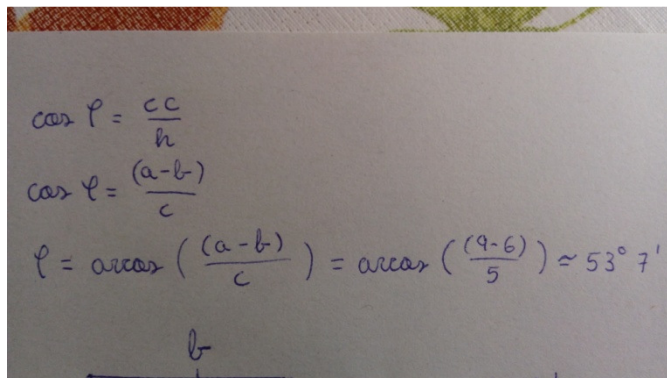 cos φ = cc/h
cos φ = (a-b)/c
φ = arccos ( (a-b)/c ) = arccos ( (9-6)/5 ) ≈ 53° 7'
b